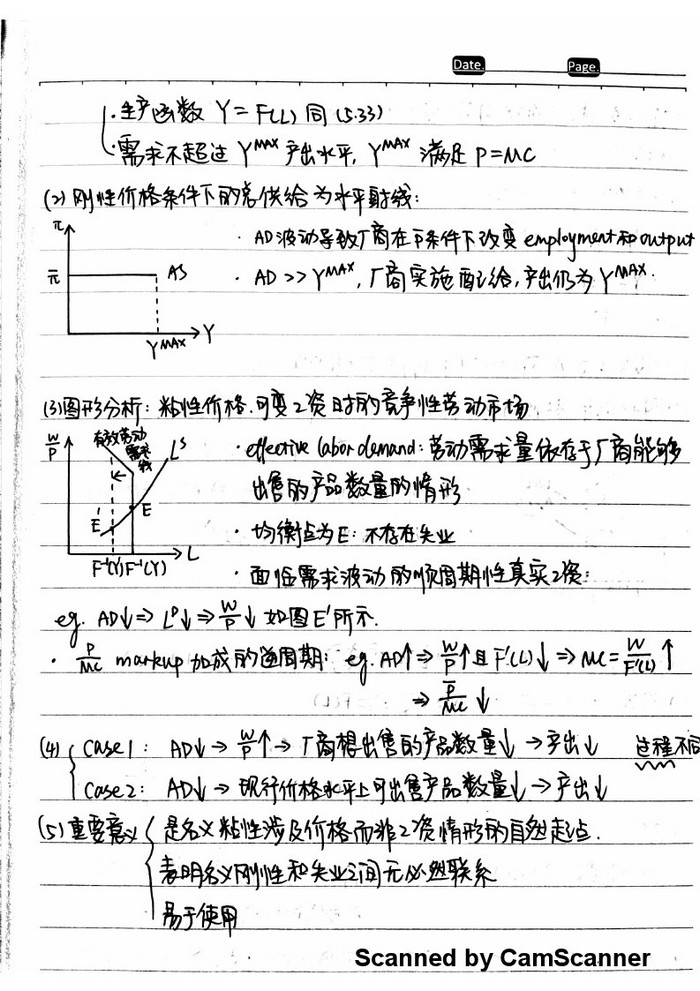 Date.
Page.
· 生产函数 Y = F(L) 同 (5.33)
· 需求不超过 Y^MAX 产出水平, Y^MAX 满足 P=MC
(2) 刚性价格条件下的总供给为水平射线:
π
π̄
AS
Y^MAX
Y
· AD波动导致厂商在P̄条件下改变 employment和output
· AD >> Y^MAX, 厂商实施配给,产出仍为 Y^MAX.
(3)图形分析: 粘性价格.可变工资时的竞争性劳动市场
W/P
有效劳动
需求
线
L^S
E'
E
F⁻¹(Y') F⁻¹(Y)
L
· effective labor demand: 劳动需求量依存于厂商能够
出售的产品数量的情形
· 均衡点为E: 不存在失业
· 面临需求波动的顺周期性真实工资:
eg. AD↓ ⇒ L^D↓ ⇒ W/P↓ 如图E'所示.
· P/MC markup 加成的逆周期: eg. AD↑ ⇒ W/P↑ 且 F'(L)↓ ⇒ MC = W/F'(L) ↑
⇒ P̄/MC ↓
(4) case1: AD↓ → W/P↑ → 厂商想出售的产品数量↓ → 产出↓ 过程不同
case2: AD↓ → 现行价格水平上可出售产品数量↓ → 产出↓
(5) 重要意义 是名义粘性涉及价格而非工资情形的自然起点.
表明名义刚性和失业之间无必然联系
易于使用
Scanned by CamScanner